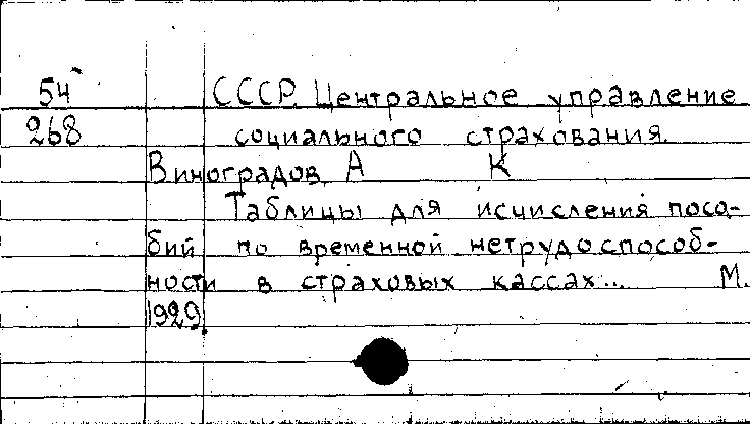 54 СССР. Центральное управление
268 социального страхования.
Виноградов, А К
Таблицы для исчисления посо-
бий по временной нетрудоспособ-
ности в страховых кассах... М.
1929.